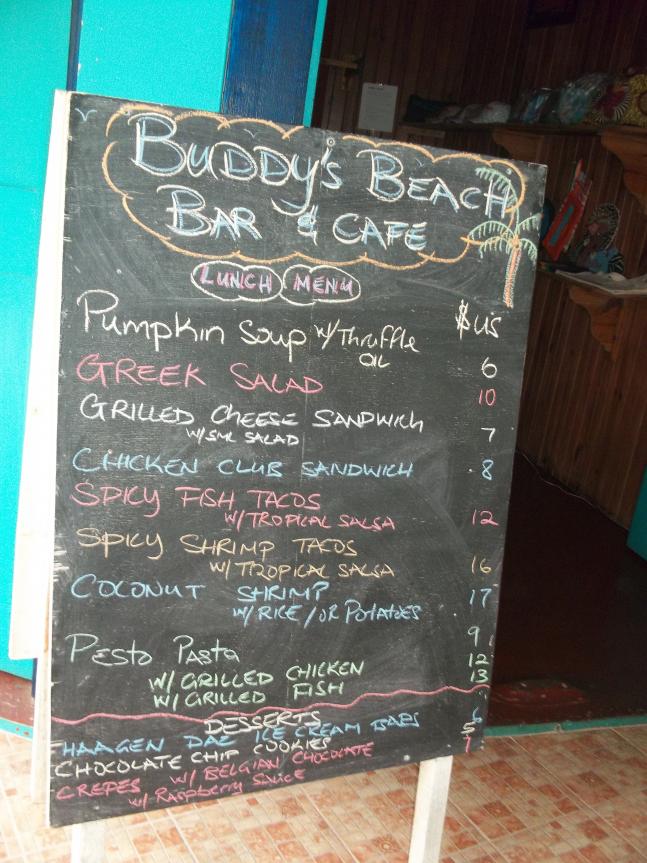 BUDDY'S BEACH
BAR & CAFE
LUNCH MENU
$US
Pumpkin Soup w/ Thruffle
OIL 6
GREEK SALAD 10
GRILLED CHEESE SANDWICH 7
W/ SML SALAD
CHICKEN CLUB SANDWICH 8
SPICY FISH TACOS
W/ TROPICAL SALSA 12
SPICY SHRIMP TACOS
W/ TROPICAL SALSA 16
COCONUT SHRIMP 17
W/ RICE / OR POTATOES
Pesto Pasta 9
W/ GRILLED CHICKEN 12
W/ GRILLED FISH 13
DESSERTS
HAAGEN DAZ ICE CREAM BARS 6
CHOCOLATE CHIP COOKIES 5
CREPES W/ BELGIAN CHOCOLATE 7
W/ Raspberry Sauce